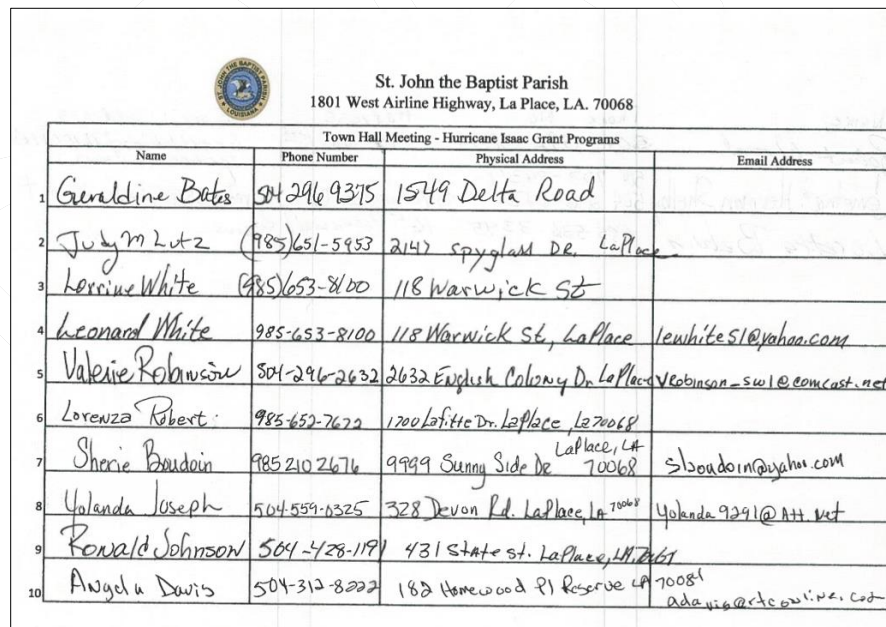 ST. JOHN THE BAPTIST PARISH
LOUISIANA
St. John the Baptist Parish
1801 West Airline Highway, La Place, LA. 70068
Town Hall Meeting - Hurricane Isaac Grant Programs
Name Phone Number Physical Address Email Address
1 Geraldine Bates 504 296 9375 1549 Delta Road
2 Judy M Lutz (985)651-5953 2142 Spyglass DR. LaPlace
3 Lorrine White (985)653-8100 118 Warwick St
4 Leonard White 985-653-8100 118 Warwick St, LaPlace lewhite51@yahoo.com
5 Valerie Robinson 504-296-2632 2632 English Colony Dr LaPlace VRobinson_sw1@comcast.net
6 Lorenza Robert 985-652-7622 1700 Lafitte Dr. LaPlace, La 70068
7 Sherie Boudoin 985 210 2676 9999 Sunny Side DR LaPlace, LA 70068 slboudoin@yahoo.com
8 Yolanda Joseph 504-559-0325 328 Devon Rd. LaPlace, LA 70068 Yolanda9291@Att.net
9 Ronald Johnson 504-428-1191 431 State St. LaPlace, LA.
10 Angela Davis 504-312-8222 182 Homewood Pl Reserve LA 70084